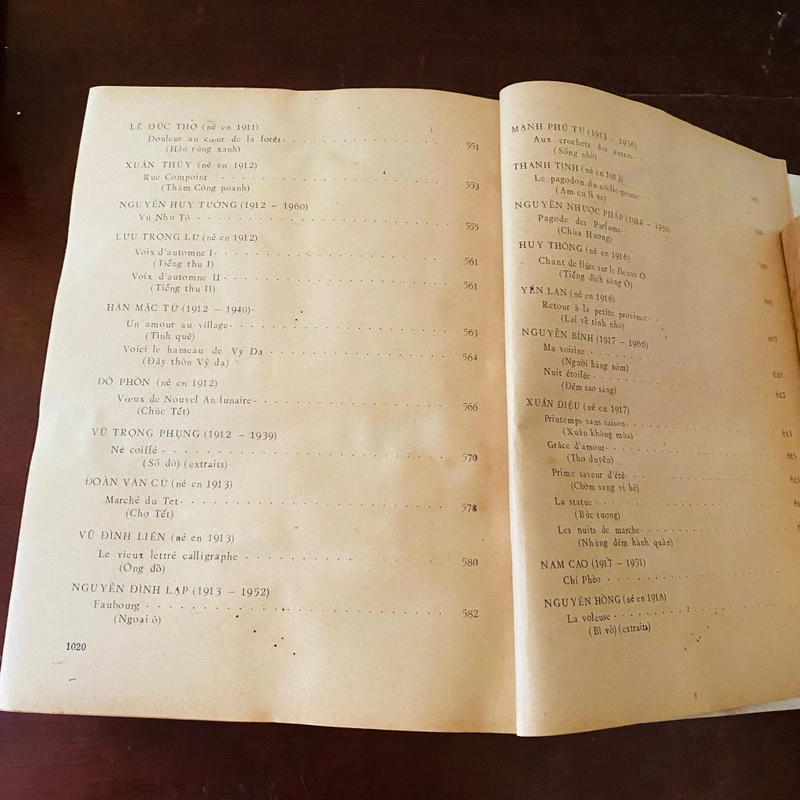 LÊ ĐỨC THỌ (né en 1911)
Douleur au cœur de la forêt 551
(Hận rừng xanh)
XUÂN THỦY (né en 1912)
Rue Compoint 553
(Thăm Công poanh)
NGUYỄN HUY TƯỞNG (1912 – 1960)
Vũ Như Tô 555
LƯU TRỌNG LƯ (né en 1912)
Voix d'automne I 561
(Tiếng thu I)
Voix d'automne II 561
(Tiếng thu II)
HÀN MẶC TỬ (1912 – 1940)
Un amour au village 563
(Tình quê)
Voici le hameau de Vy Da 564
(Đây thôn Vỹ dạ)
ĐỒ PHỒN (né en 1912)
Vœux de Nouvel An lunaire 566
(Chúc Tết)
VŨ TRỌNG PHỤNG (1912 – 1939)
Né coiffé 570
(Số đỏ) (extraits)
ĐOÀN VĂN CỪ (né en 1913)
Marché du Tet 578
(Chợ Tết)
VŨ ĐÌNH LIÊN (né en 1913)
Le vieux lettré calligraphe 580
(Ông đồ)
NGUYỄN ĐÌNH LẠP (1913 – 1952)
Faubourg 582
(Ngoại ô)
1020
MẠNH PHÚ TƯ (1913 – 1956)
Aux crochets des autres
(Sống nhờ)
THANH TỊNH (né en 1913)
Le pagodon du coolie-pousse
(Am cu li xe)
NGUYỄN NHƯỢC PHÁP (1914 – 1938)
Pagode des Parfums
(Chùa Hương)
HUY THÔNG (né en 1916)
Chant de flûte sur le fleuve O
(Tiếng địch sông Ô)
YẾN LAN (né en 1916)
Retour à la petite province
(Lại về tỉnh nhỏ)
NGUYỄN BÍNH (1917 – 1966) 607
Ma voisine
(Người hàng xóm) 610
Nuit étoilée
(Đêm sao sáng) 612
XUÂN DIỆU (né en 1917)
Printemps sans saison
(Xuân không mùa) 613
Grâce d'amour
(Thơ duyên)
Prime saveur d'été
(Chớm sang vị hè)
La statue
(Bức tượng)
Les nuits de marche
(Những đêm hành quân)
NAM CAO (1917 – 1951)
Chí Phèo
NGUYÊN HỒNG (né en 1918)
La voleuse
(Bỉ vỏ) (extraits)